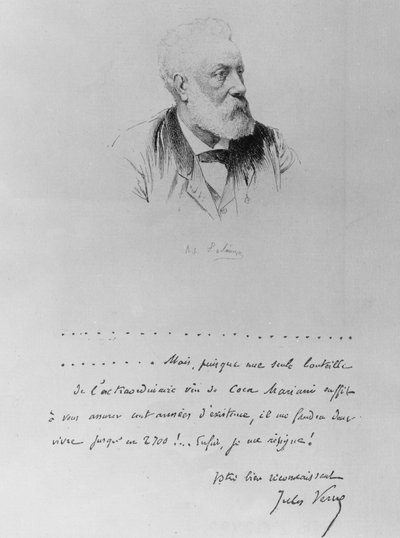 Mais, puisque une seule bouteille
de l'extraordinaire vin de Coca Mariani suffit
à vous assurer cent années d'existence, il me faudra donc
vivre jusqu'en 2700 !... Enfin, je me résigne !
Votre bien reconnaissant
Jules Verne